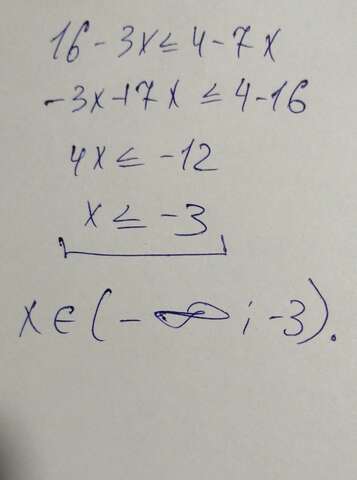 16 - 3x ≤ 4 - 7x
-3x+7x ≤ 4-16
4x ≤ -12
x ≤ -3
x ∈ (-∞ ; -3).